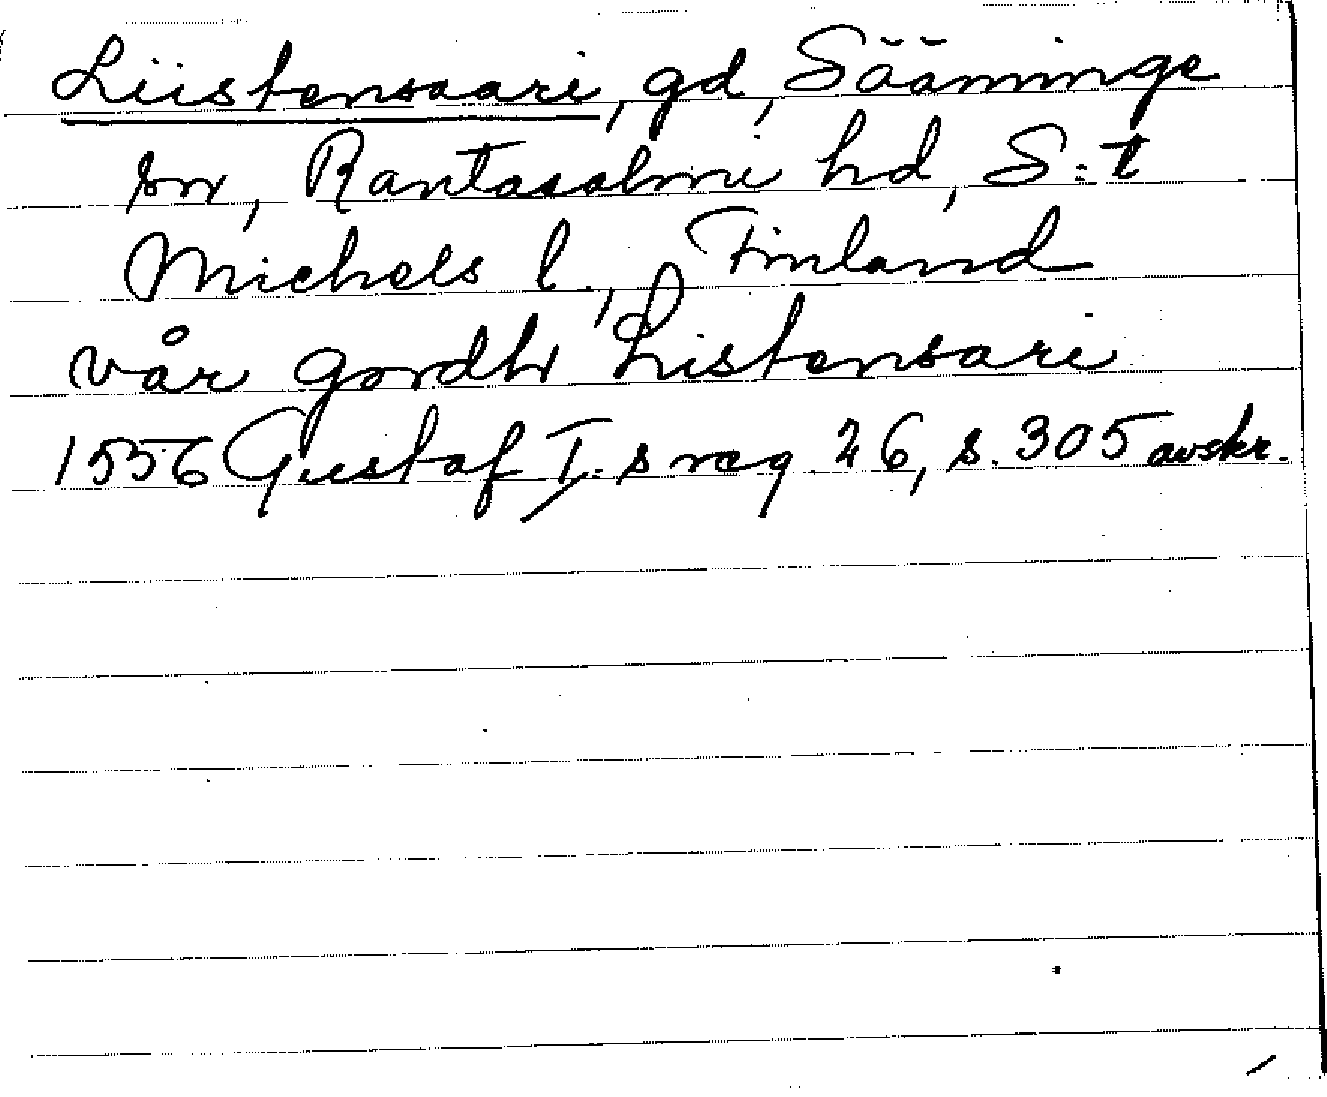 Liistensaari, gd, Sääminge
sn, Rantasalmi hd, S:t
Michels l., Finland
vår gordh Listensari
1556 Gustaf I:s reg 26, s. 305 avskr.